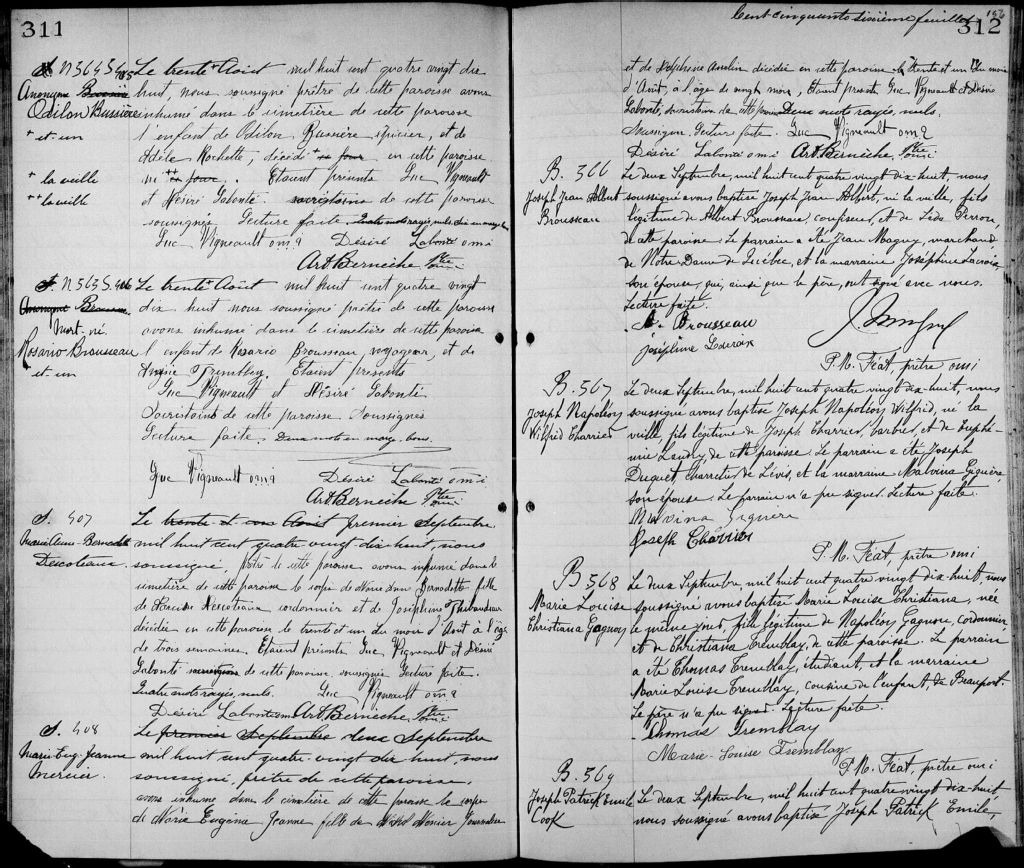 311
N 364 S 405 Le trente + Août mil huit cent quatre vingt dix
Anonyme huit, nous soussigné prêtre de cette paroisse avons
Odilon Bussière inhumé dans le cimetière de cette paroisse
+ et un l'enfant de Odilon Bussière épicier, et de
Adèle Rochette, décédé + jour en cette paroisse
+ la veille né ++ jour. Etaient présents Luc Vigneault
++ la veille et Désiré Labonté. sacristains de cette paroisse
soussignés Lecture faite. Quatre mots rayés nuls
Luc Vigneault om9 Désiré Labonté omi
Art Berneche Ptre omi
N 365 S. 406 Le trente + Août mil huit cent quatre vingt
Anonyme dix huit nous soussigné prêtre de cette paroisse
Mort-né avons inhumé dans le cimetière de cette paroisse
Rosario Brousseau l'enfant de Rosario Brousseau voyageur, et de
+ et un Tremblay. Etaient présents
Luc Vigneault et Désiré Labonté
Sacristains de cette paroisse Soussignés
Lecture faite. Deux mots en marg. bons.
Luc Vigneault om9 Désiré Labonté omi
Art Berneche Ptre omi
S. 407 Le trente et un Août premier Septembre
Marie Anne Bernadette mil huit cent quatre vingt dix huit, nous
Descoteaux soussigné, Prêtre de cette paroisse avons inhumé dans le
cimetière de cette paroisse le corps de Marie Anne Bernadette fille
de Narcisse Descoteaux cordonnier et de Josephine Thibaudeau
décédée en cette paroisse le trente et un du mois d'Août à l'âge
de trois semaines. Etaient présents Luc Vigneault et Désiré
Labonté de cette paroisse, soussignés Lecture faite.
Quatre mots rayés, nuls. Luc Vigneault om9
Désiré Labonté omi Art Berneche Ptre omi
S. 408 Le premier Septembre deux Septembre
Marie-Eug. Jeanne mil huit cent quatre-vingt dix huit, nous
Mercier. soussigné, prêtre de cette paroisse
avons inhumé dans le cimetière de cette paroisse le corps
de Marie Eugénie Jeanne fille de Mercier Journalier
Cent cinquante sixième feuillet 156
312
et de Delphine Asselin décédée en cette paroisse le trente et un du mois
d'Août, à l'âge de vingt mois, Etaient présents Luc Vigneault et Désiré
Labonté, sacristains de cette paroisse Deux mots rayés, nuls.
Soussignés. Lecture faite. Luc Vigneault om9
Désiré Labonté omi Art Berneche Ptre omi
B. 366 Le deux Septembre, mil huit cent quatre vingt dix-huit, nous
Joseph Jean Albert soussigné avons baptisé Joseph Jean Albert, né la veille, fils
Brousseau légitime de Albert Brousseau, confiseur, et de Léda Perron,
de cette paroisse. Le parrain a été Jean Maguy, marchand
de Notre Dame de Québec, et la marraine Joséphine Lacroix,
son épouse, qui, ainsi que le père, ont signé avec nous.
Lecture faite.
A. Brousseau
Joséphine Lacroix
P. M. Féat, prêtre omi
B. 367 Le deux Septembre, mil huit cent quatre vingt dix-huit, nous
Joseph Napoléon soussigné avons baptisé Joseph Napoléon Wilfrid, né la
Wilfrid Charrier veille, fils légitime de Joseph Charrier, barbier, et de Euphé-
mie Landry de cette paroisse. Le parrain a été Joseph
Duquet, charretier de Lévis, et la marraine Malvina Giguère,
son épouse. Le parrain n'a pu signer. Lecture faite.
Malvina Giguère
Joseph Charrier
P. M. Féat, prêtre omi
B 368 Le deux Septembre, mil huit cent quatre vingt dix-huit, nous
Marie Louise soussigné avons baptisé Marie Louise Christiana, née
Christiana Gagnon le même jour, fille légitime de Napoléon Gagnon, cordonnier
et de Christiana Tremblay, de cette paroisse. Le parrain
a été Thomas Tremblay, étudiant, et la marraine
Marie Louise Tremblay, cousine de l'enfant, de Beauport.
Le père n'a pu signer. Lecture faite.
Thomas Tremblay
Marie-Louise Tremblay
P. M. Féat, prêtre omi
B. 369
Joseph Patrick Emile Le deux Septembre, mil huit cent quatre vingt dix-huit
Cook nous soussigné avons baptisé Joseph Patrick Emile,